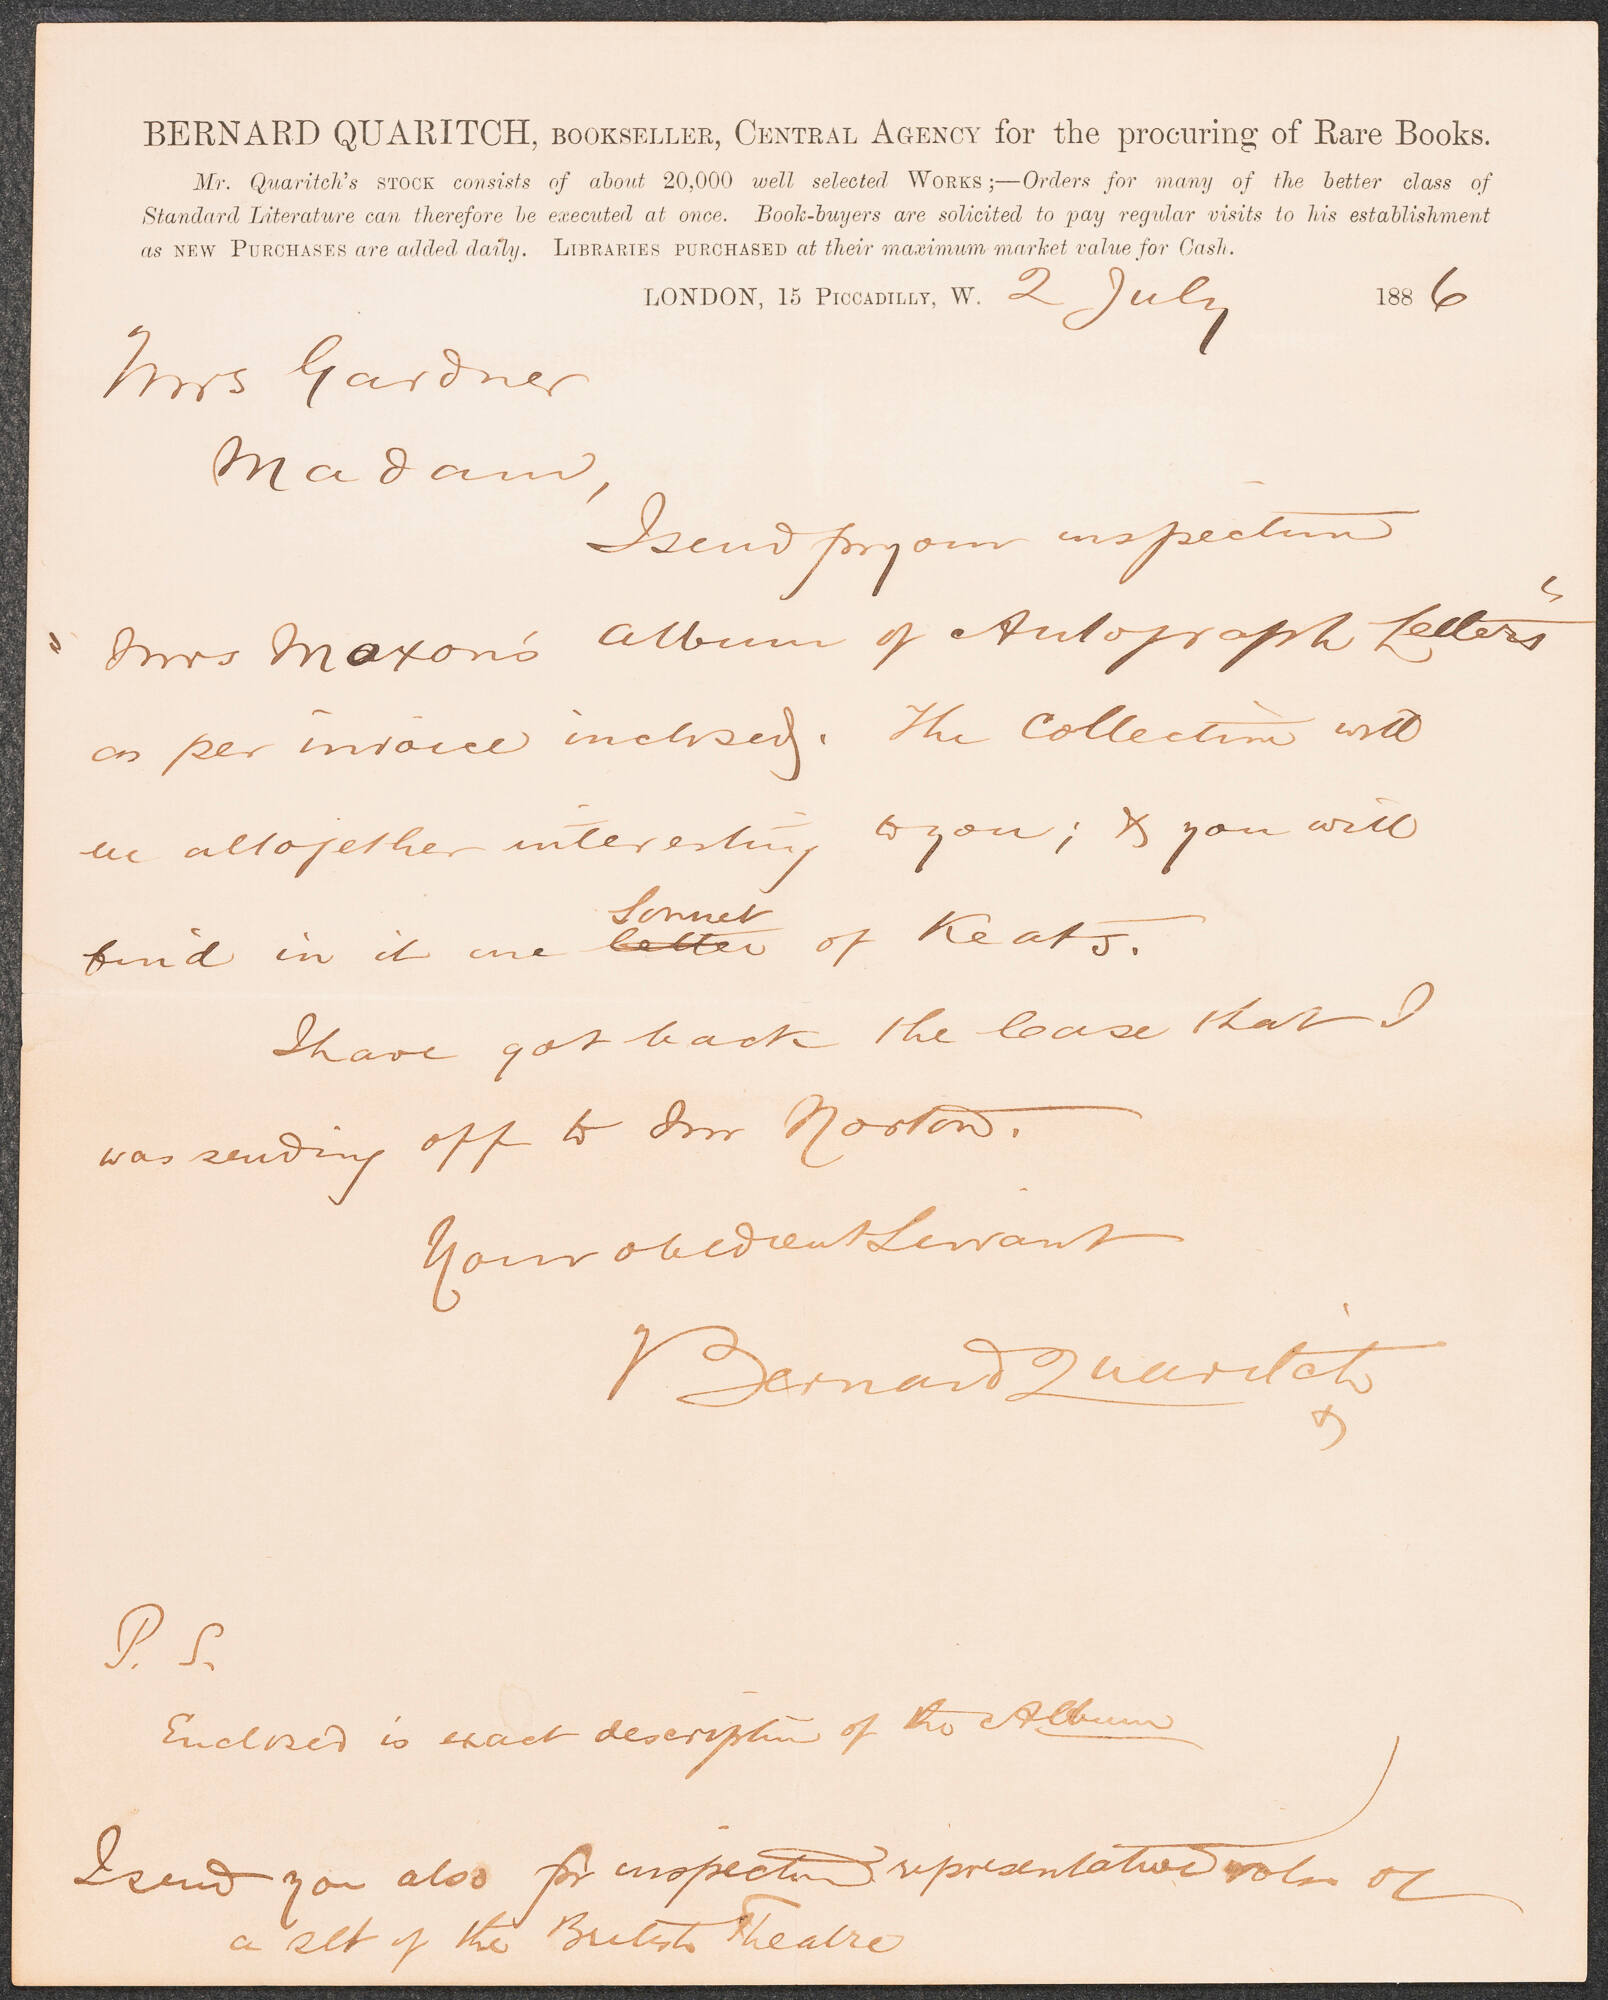 BERNARD QUARITCH, BOOKSELLER, CENTRAL AGENCY for the procuring of Rare Books.
Mr. Quaritch's STOCK consists of about 20,000 well selected WORKS;—Orders for many of the better class of
Standard Literature can therefore be executed at once. Book-buyers are solicited to pay regular visits to his establishment
as NEW PURCHASES are added daily. LIBRARIES PURCHASED at their maximum market value for Cash.
LONDON, 15 PICCADILLY, W. 2 July 1886
Mrs Gardner
Madam,
I send for your inspection
"Mrs Moxon's album of Autograph Letters"
as per invoice inclosed. The Collection will
be altogether interesting to you; & you will
find in it one letter Sonnet of Keats.
I have got back the lease that I
was sending off to Mr Norton.
Your obedient Servant
Bernard Quaritch
P. S.
Enclosed is exact description of the Album
I send you also for inspection representative vols of
a set of the British Theatre